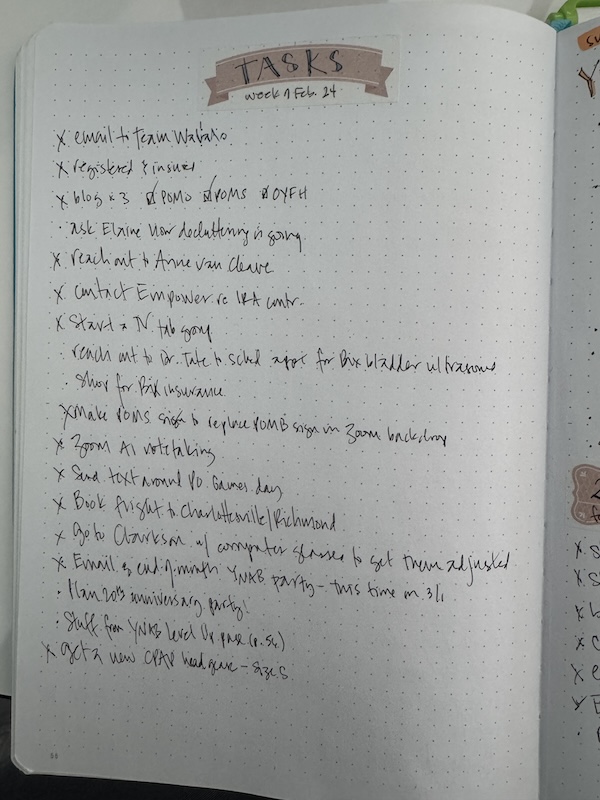 TASKS
week of Feb. 24
x email to Team Wabaxo
x registered & insured
x blog x 3 ☑ POMO ☑ POMS ☑ OYFH
· ask Elaine how decluttering is going
x reach out to Annie Van Cleave
x contact Empower re IRA contr-
x Start a TV tab group
· reach out to Dr. Tate to sched appt for Bix bladder ultrasound
· Shop for Bix insurance
x Make POMS sign to replace POMB sign in Zoom backdrop
x Zoom AI notetaking
x Send text around re. Games day
x Book flight to Charlottesville/Richmond
x Go to Clarkson w/ computer glasses to get them adjusted
x Email re end-of-month YNAB party - this time on 3/1
· Plan 20th anniversary party!
· Stuff from YNAB Level Up page (p. 54)
x get a new CPAP head gear - size S